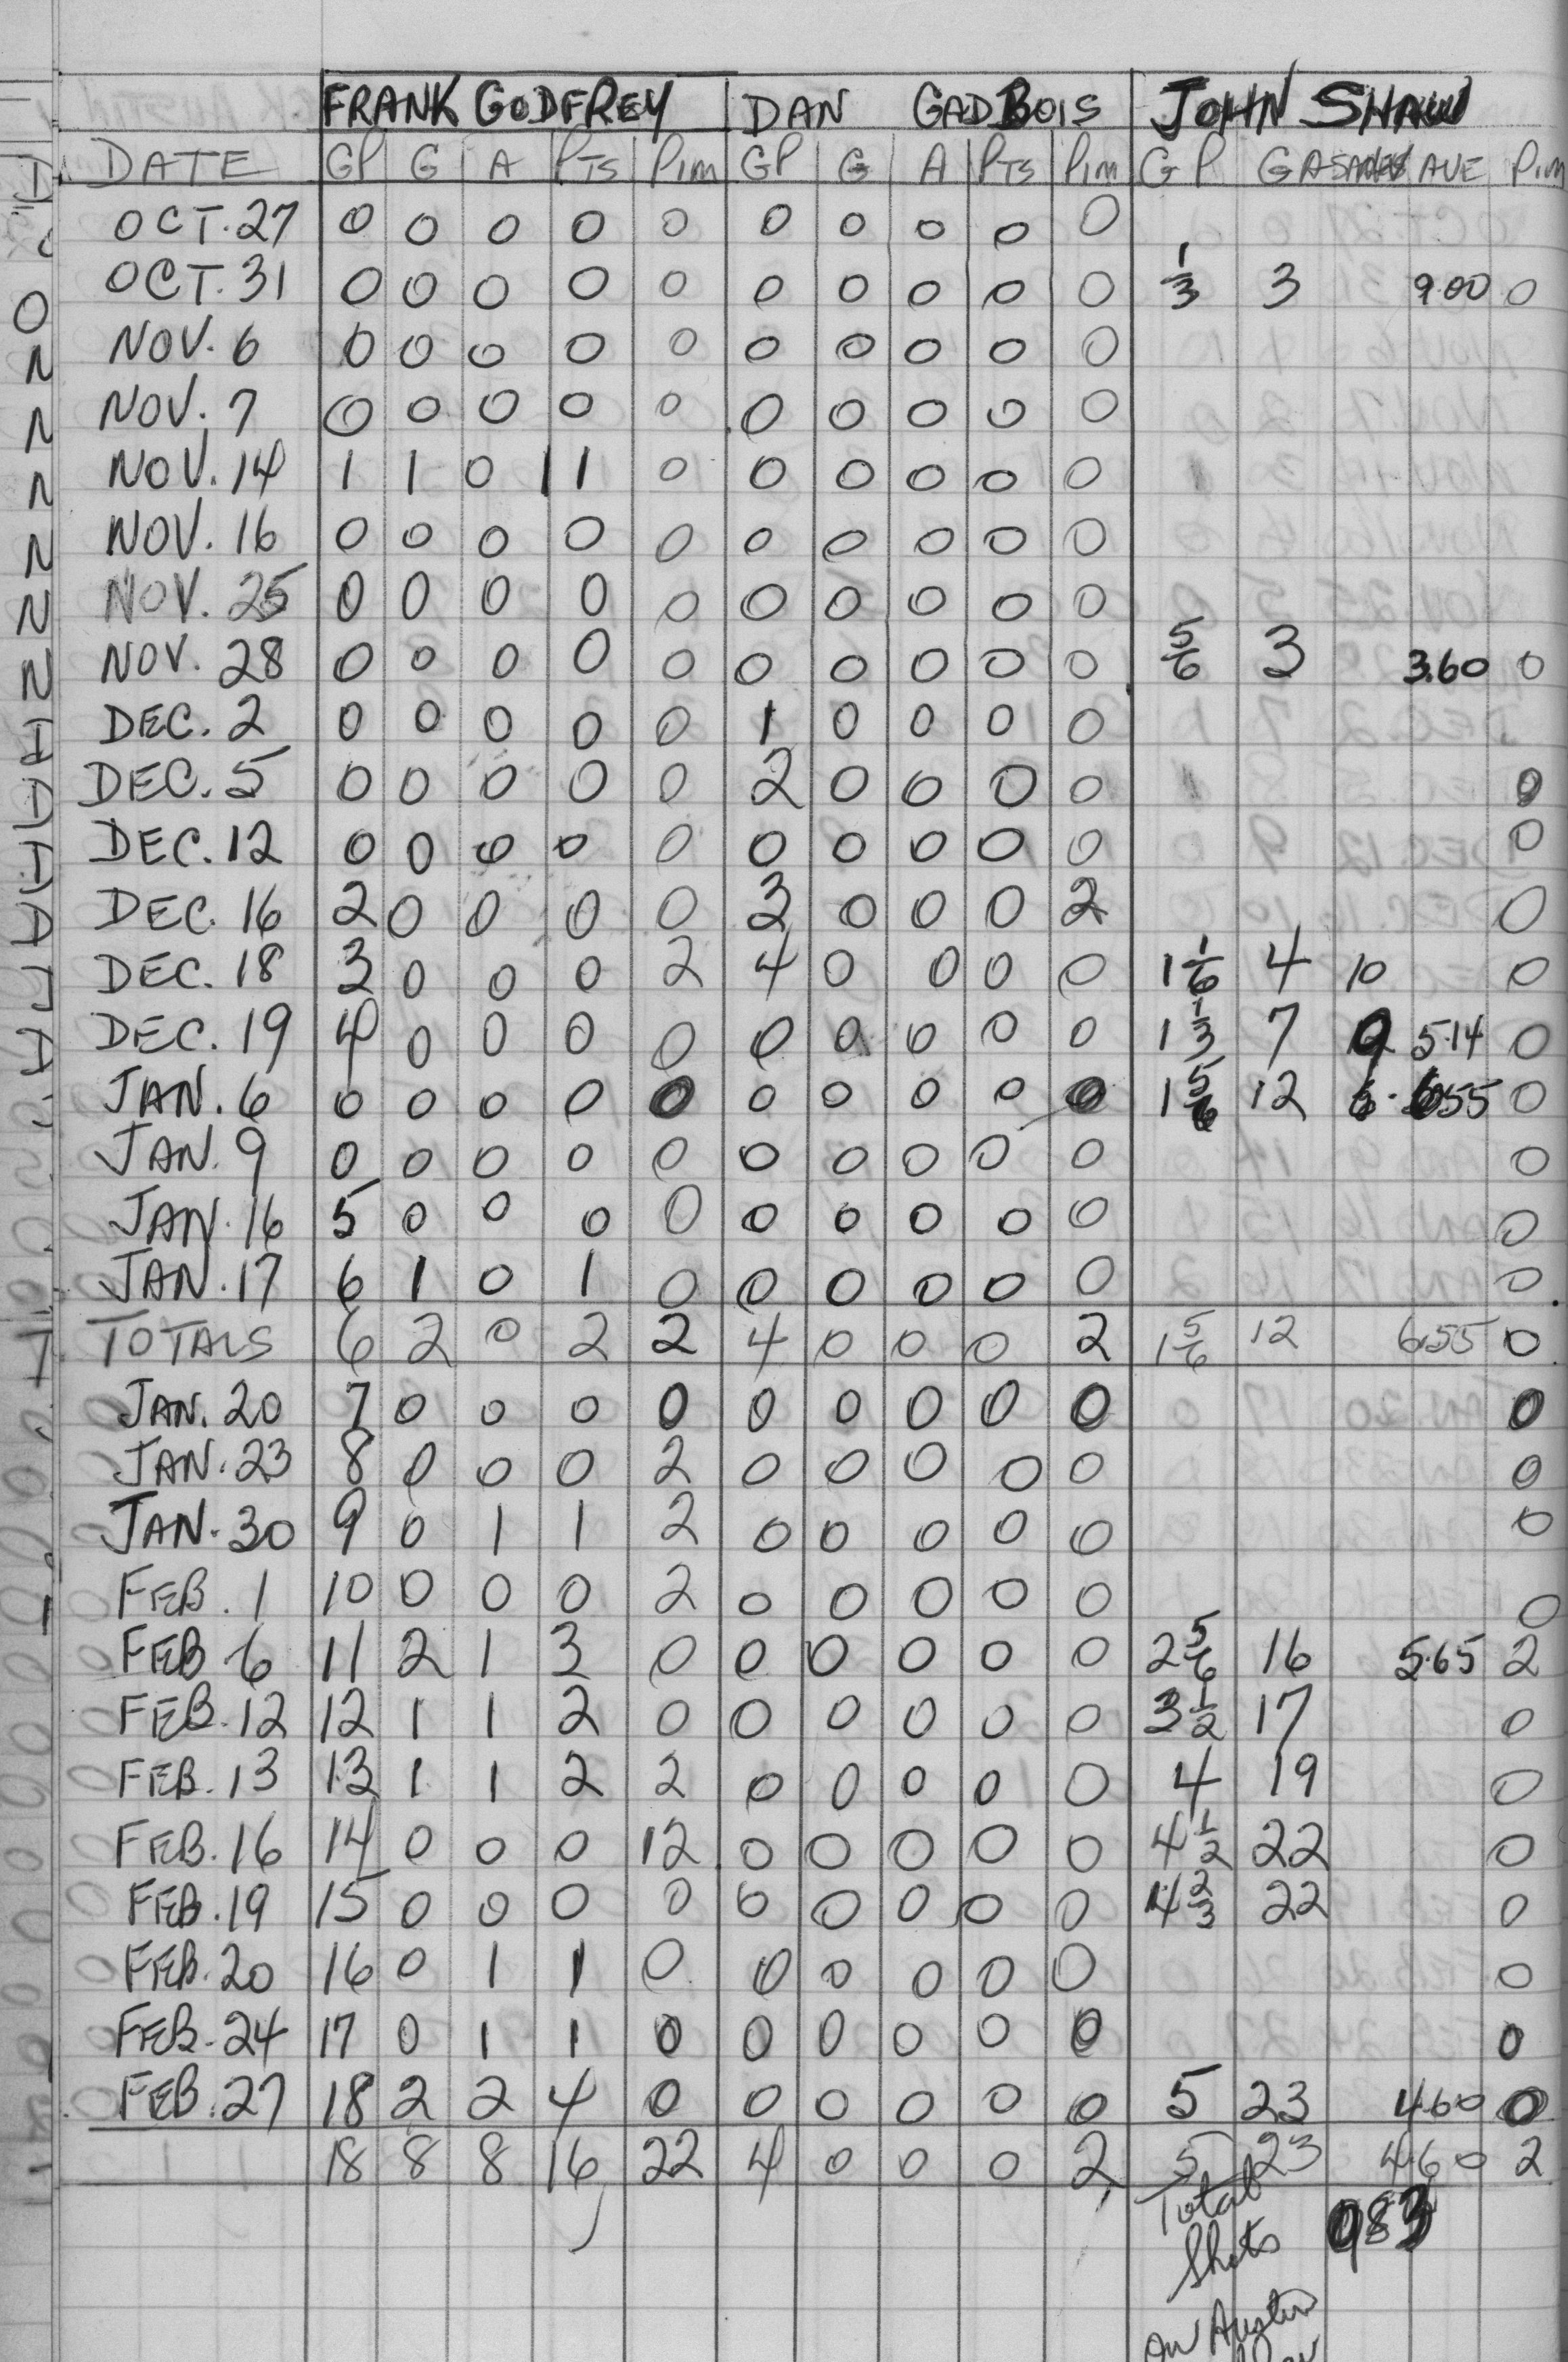 FRANK GODFREY DAN GADBOIS JOHN SHAW
DATE GP G A PTS Pim GP G A PTS Pim GP GA AVE Pim
OCT. 27 0 0 0 0 0 0 0 0 0 0
OCT. 31 0 0 0 0 0 0 0 0 0 0 1/3 3 9.00 0
NOV. 6 0 0 0 0 0 0 0 0 0 0
NOV. 7 0 0 0 0 0 0 0 0 0 0
NOV. 14 1 1 0 1 0 0 0 0 0 0
NOV. 16 0 0 0 0 0 0 0 0 0 0
NOV. 25 0 0 0 0 0 0 0 0 0 0
NOV. 28 0 0 0 0 0 0 0 0 0 0 5/6 3 3.60 0
DEC. 2 0 0 0 0 0 1 0 0 0 0
DEC. 5 0 0 0 0 0 2 0 0 0 0 0
DEC. 12 0 0 0 0 0 0 0 0 0 0 0
DEC. 16 2 0 0 0 0 3 0 0 0 2 0
DEC. 18 3 0 0 0 2 4 0 0 0 0 1 1/6 4 10 0
DEC. 19 4 0 0 0 0 0 0 0 0 0 1 1/3 7 9 5.14 0
JAN. 6 0 0 0 0 0 0 0 0 0 0 1 5/6 12 6.55 0
JAN. 9 0 0 0 0 0 0 0 0 0 0 0
JAN. 16 5 0 0 0 0 0 0 0 0 0 0
JAN. 17 6 1 0 1 0 0 0 0 0 0 0
TOTALS 6 2 0 2 2 4 0 0 0 2 1 5/6 12 6.55 0
JAN. 20 7 0 0 0 0 0 0 0 0 0 0
JAN. 23 8 0 0 0 2 0 0 0 0 0 0
JAN. 30 9 0 1 1 2 0 0 0 0 0 0
FEB. 1 10 0 0 0 2 0 0 0 0 0 0
FEB 6 11 2 1 3 0 0 0 0 0 0 2 5/6 16 5.65 2
FEB. 12 12 1 1 2 0 0 0 0 0 0 3 1/2 17 0
FEB. 13 13 1 1 2 2 0 0 0 0 0 4 19 0
FEB. 16 14 0 0 0 12 0 0 0 0 0 4 1/2 22 0
FEB. 19 15 0 0 0 0 0 0 0 0 0 4 2/3 22 0
FEB. 20 16 0 1 1 0 0 0 0 0 0 0
FEB. 24 17 0 1 1 0 0 0 0 0 0 0
FEB. 27 18 2 2 4 0 0 0 0 0 0 5 23 4.60 0
18 8 8 16 22 4 0 0 0 2 5 23 4.60 2
Total
Shots
On Austin